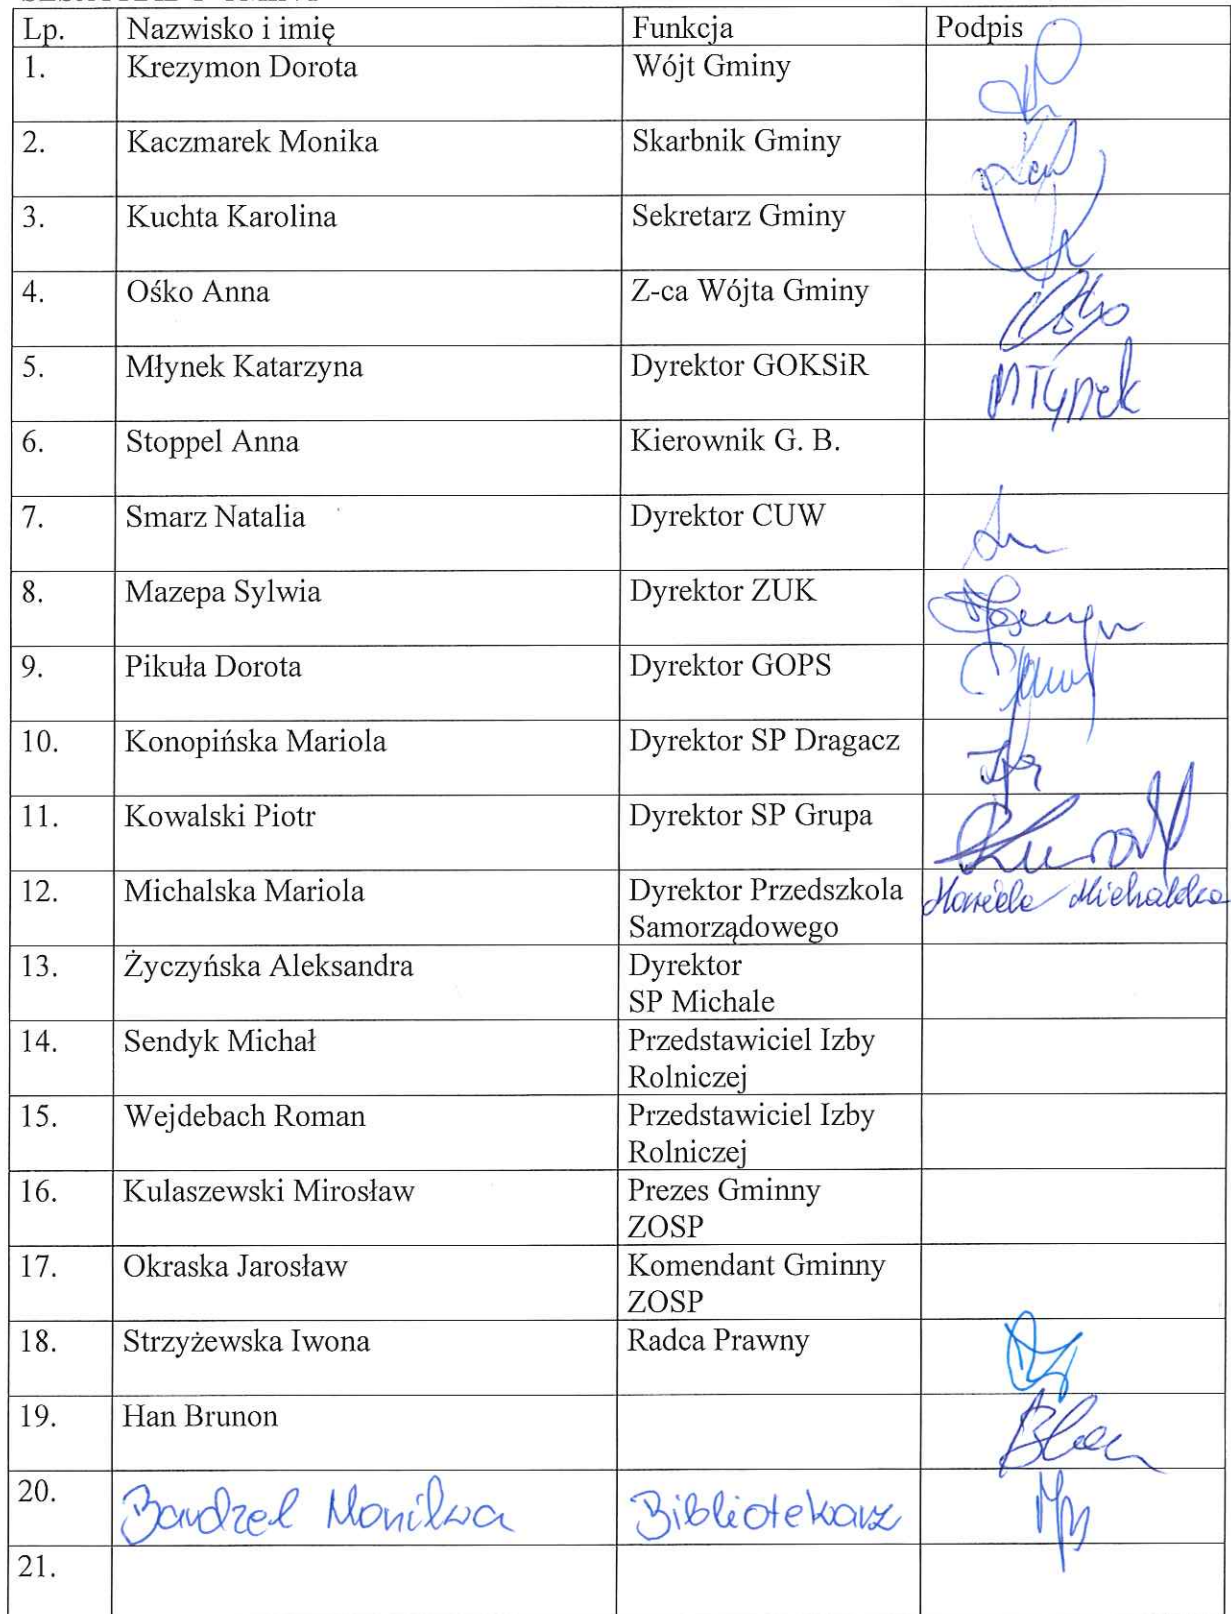 Lp. Nazwisko i imię Funkcja Podpis
1. Krezymon Dorota Wójt Gminy
2. Kaczmarek Monika Skarbnik Gminy
3. Kuchta Karolina Sekretarz Gminy
4. Ośko Anna Z-ca Wójta Gminy
5. Młynek Katarzyna Dyrektor GOKSiR Młynek
6. Stoppel Anna Kierownik G. B.
7. Smarz Natalia Dyrektor CUW
8. Mazepa Sylwia Dyrektor ZUK
9. Pikuła Dorota Dyrektor GOPS
10. Konopińska Mariola Dyrektor SP Dragacz
11. Kowalski Piotr Dyrektor SP Grupa
12. Michalska Mariola Dyrektor Przedszkola Mariola Michalska
Samorządowego
13. Życzyńska Aleksandra Dyrektor
SP Michale
14. Sendyk Michał Przedstawiciel Izby
Rolniczej
15. Wejdebach Roman Przedstawiciel Izby
Rolniczej
16. Kulaszewski Mirosław Prezes Gminny
ZOSP
17. Okraska Jarosław Komendant Gminny
ZOSP
18. Strzyżewska Iwona Radca Prawny
19. Han Brunon
20. Bandzel Monika Bibliotekarz
21.